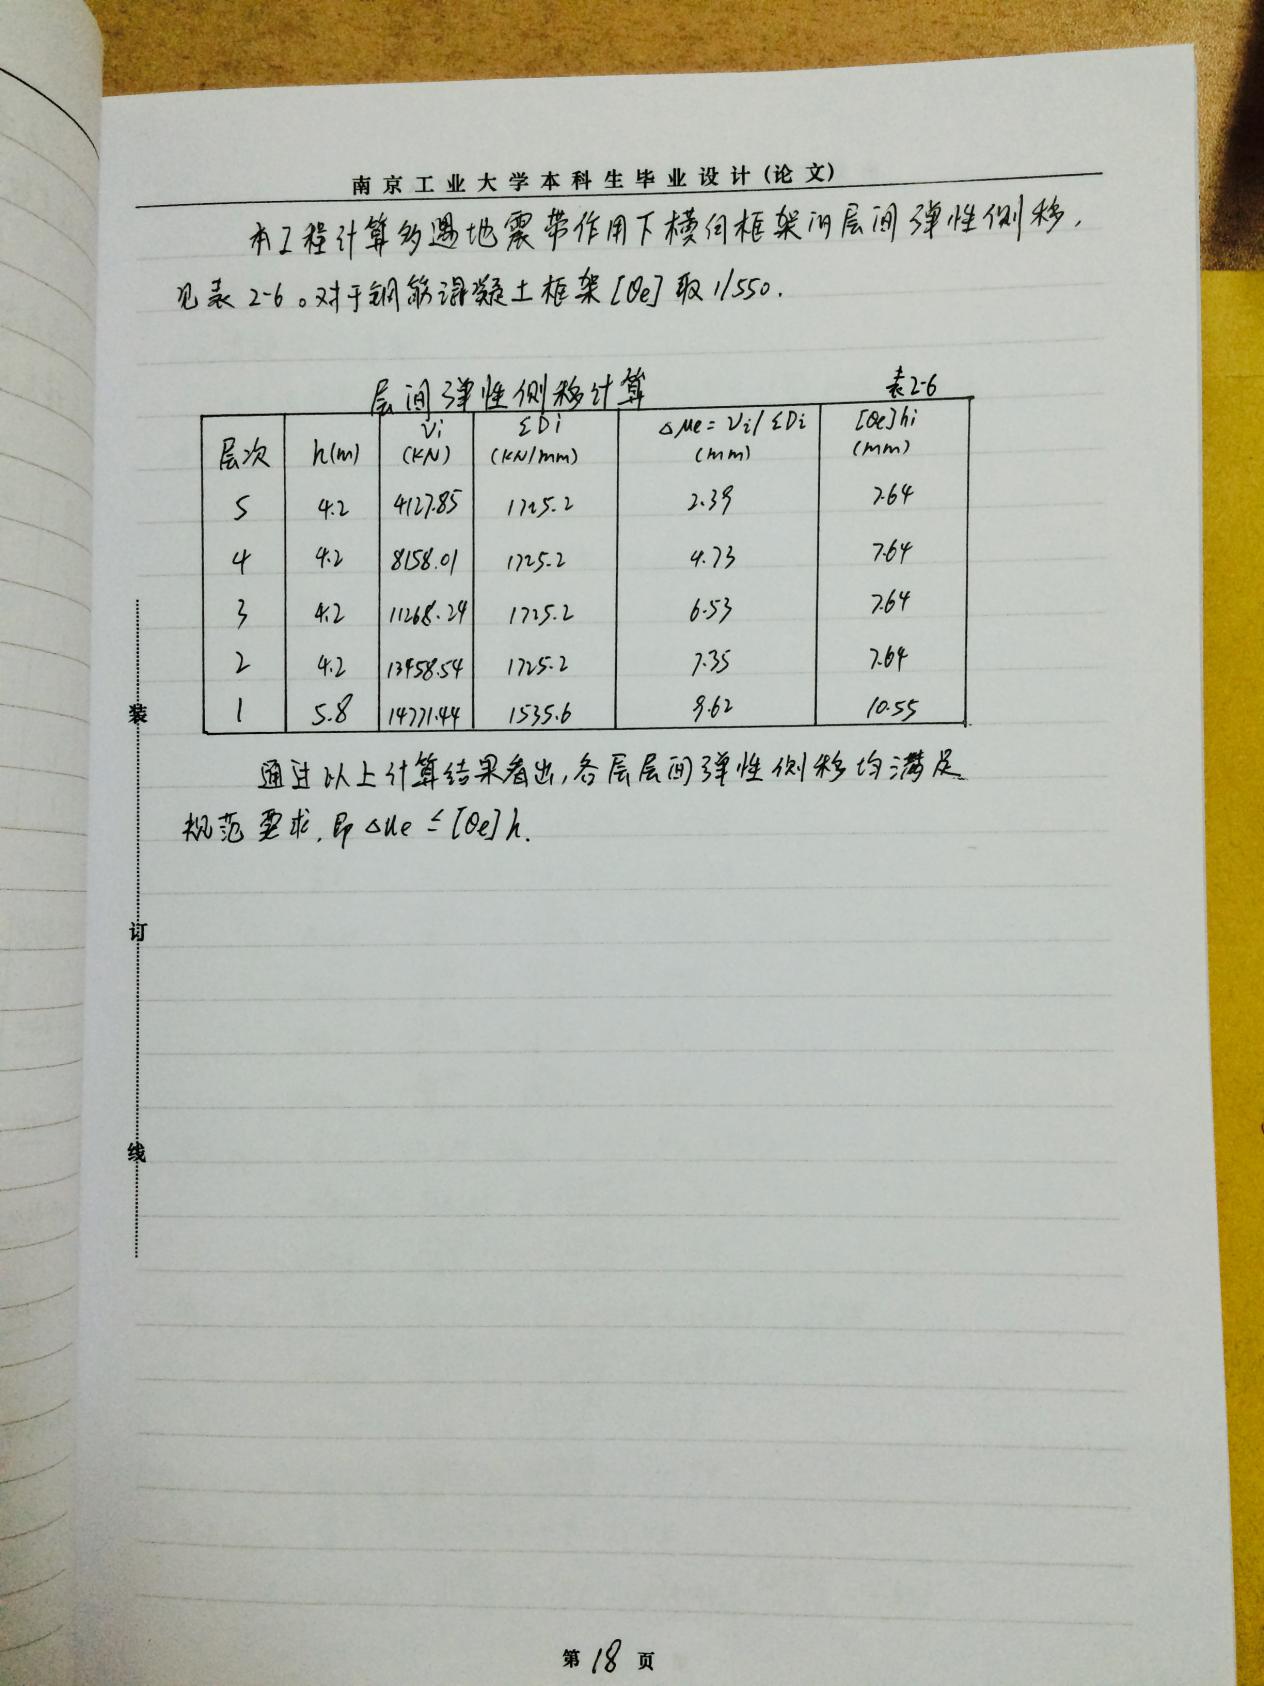 南京工业大学本科生毕业设计(论文)
本工程计算多遇地震带作用下横向框架的层间弹性侧移,
见表2-6。对于钢筋混凝土框架[θe]取1/550.
层间弹性侧移计算 表2-6
层次 h(m) Vi (KN) ΣDi (KN/mm) △μe=Vi/ΣDi (mm) [θe]hi (mm)
5 4.2 4127.85 1725.2 2.39 7.64
4 4.2 8158.01 1725.2 4.73 7.64
3 4.2 11268.24 1725.2 6.53 7.64
2 4.2 13458.54 1725.2 7.35 7.64
1 5.8 14771.44 1535.6 9.62 10.55
通过以上计算结果看出,各层层间弹性侧移均满足
规范要求,即△ue≤[θe]h.
装
订
线
第18页